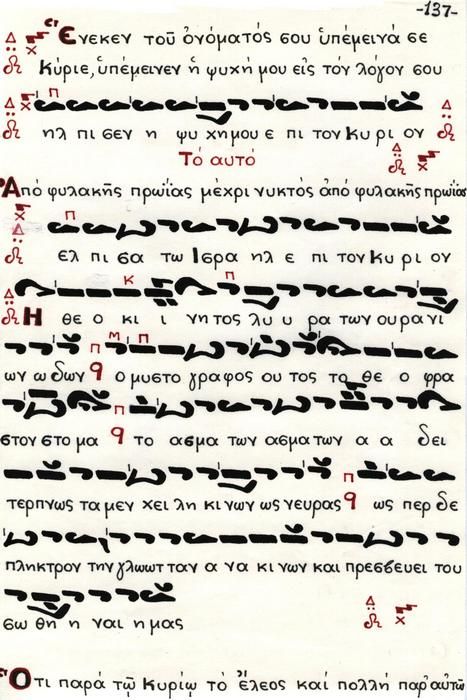 -137-
Ἕνεκεν τοῦ ὀνόματός σου ὑπέμεινά σε
Κύριε, ὑπέμεινεν ἡ ψυχή μου εἰς τόν λόγον σου
π
ηλ πι σεν η ψυ χη μου ε πι τον Κυ ρι ον
Τό αυτό
Ἀπό φυλακῆς πρωΐας μέχρι νυκτός ἀπό φυλακῆς πρωΐας
π
ελ πι σα τω Ισρα ηλ ε πι τον Κυ ρι ον
κ π
Η θε ο κι ι νη τος λυ υ ρα των ου ρα νι
π μ π
ων ω δων q ο μυστο γραφος ου τος το θε ο φρα
π
στον στο μα q το ασμα των ασμα των α α δει
π
τερπνως τα μεν χει λη κι νων ως νευρας q ως περ δε
πληκτρον την γλωωτ ταν α να κι νων και πρεσβευει του
σω θη η ναι η μας
Ὅτι παρά τῷ Κυρίῳ τό ἔλεος καί πολλή παρ' αυτῷ